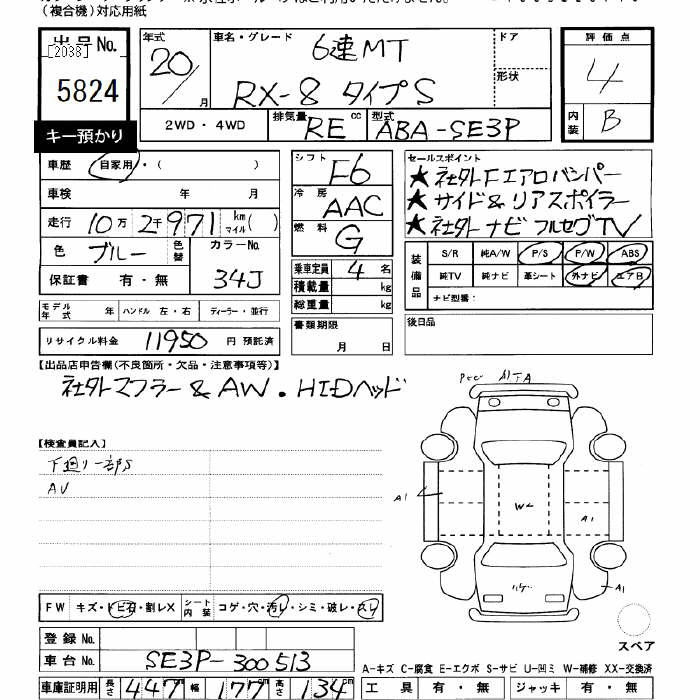 (複合機)対応用紙
出品No.
[2038]
5824
キー預かり
年式
20/
月
車名・グレード
6速MT
RX-8 タイプS
ドア
形状
2WD・4WD
排気量
RE
cc
型式
ABA-SE3P
評価点
4
内装
B
車歴 自家用・( )
車検 年 月
走行 10万 2千971 km マイル( )
色 ブルー 色替 カラーNo. 34J
保証書 有・無
シフト F6
冷房 AAC
燃料 G
乗車定員 4 名
積載量 kg
総重量 kg
セールスポイント
★社外Fエアロバンパー
★サイド&リアスポイラー
★社外ナビ フルセグTV
装備品
S/R 純A/W P/S P/W ABS
純TV 純ナビ 革シート 外ナビ エアB
ナビ型番:
モデル年式 年 ハンドル 左・右 ディーラー・並行
リサイクル料金 11950 円 預託済
書類期限
月 日
後日品
【出品店申告欄(不良箇所・欠品・注意事項等)】
社外マフラー&AW.HIDヘッド
【検査員記入】
下廻り一部S
AU
A1
W
A1
A1
FW キズ・トビ石・割レX シート内装 コゲ・穴・汚レ・シミ・破レ・スレ
登録No.
車台No. SE3P-300513
スペア
A-キズ C-腐食 E-エクボ S-サビ U-凹ミ W-補修 XX-交換済
車庫証明用 長さ 447 cm 幅 177 cm 高さ 134 cm
工具 有・無 ジャッキ 有・無